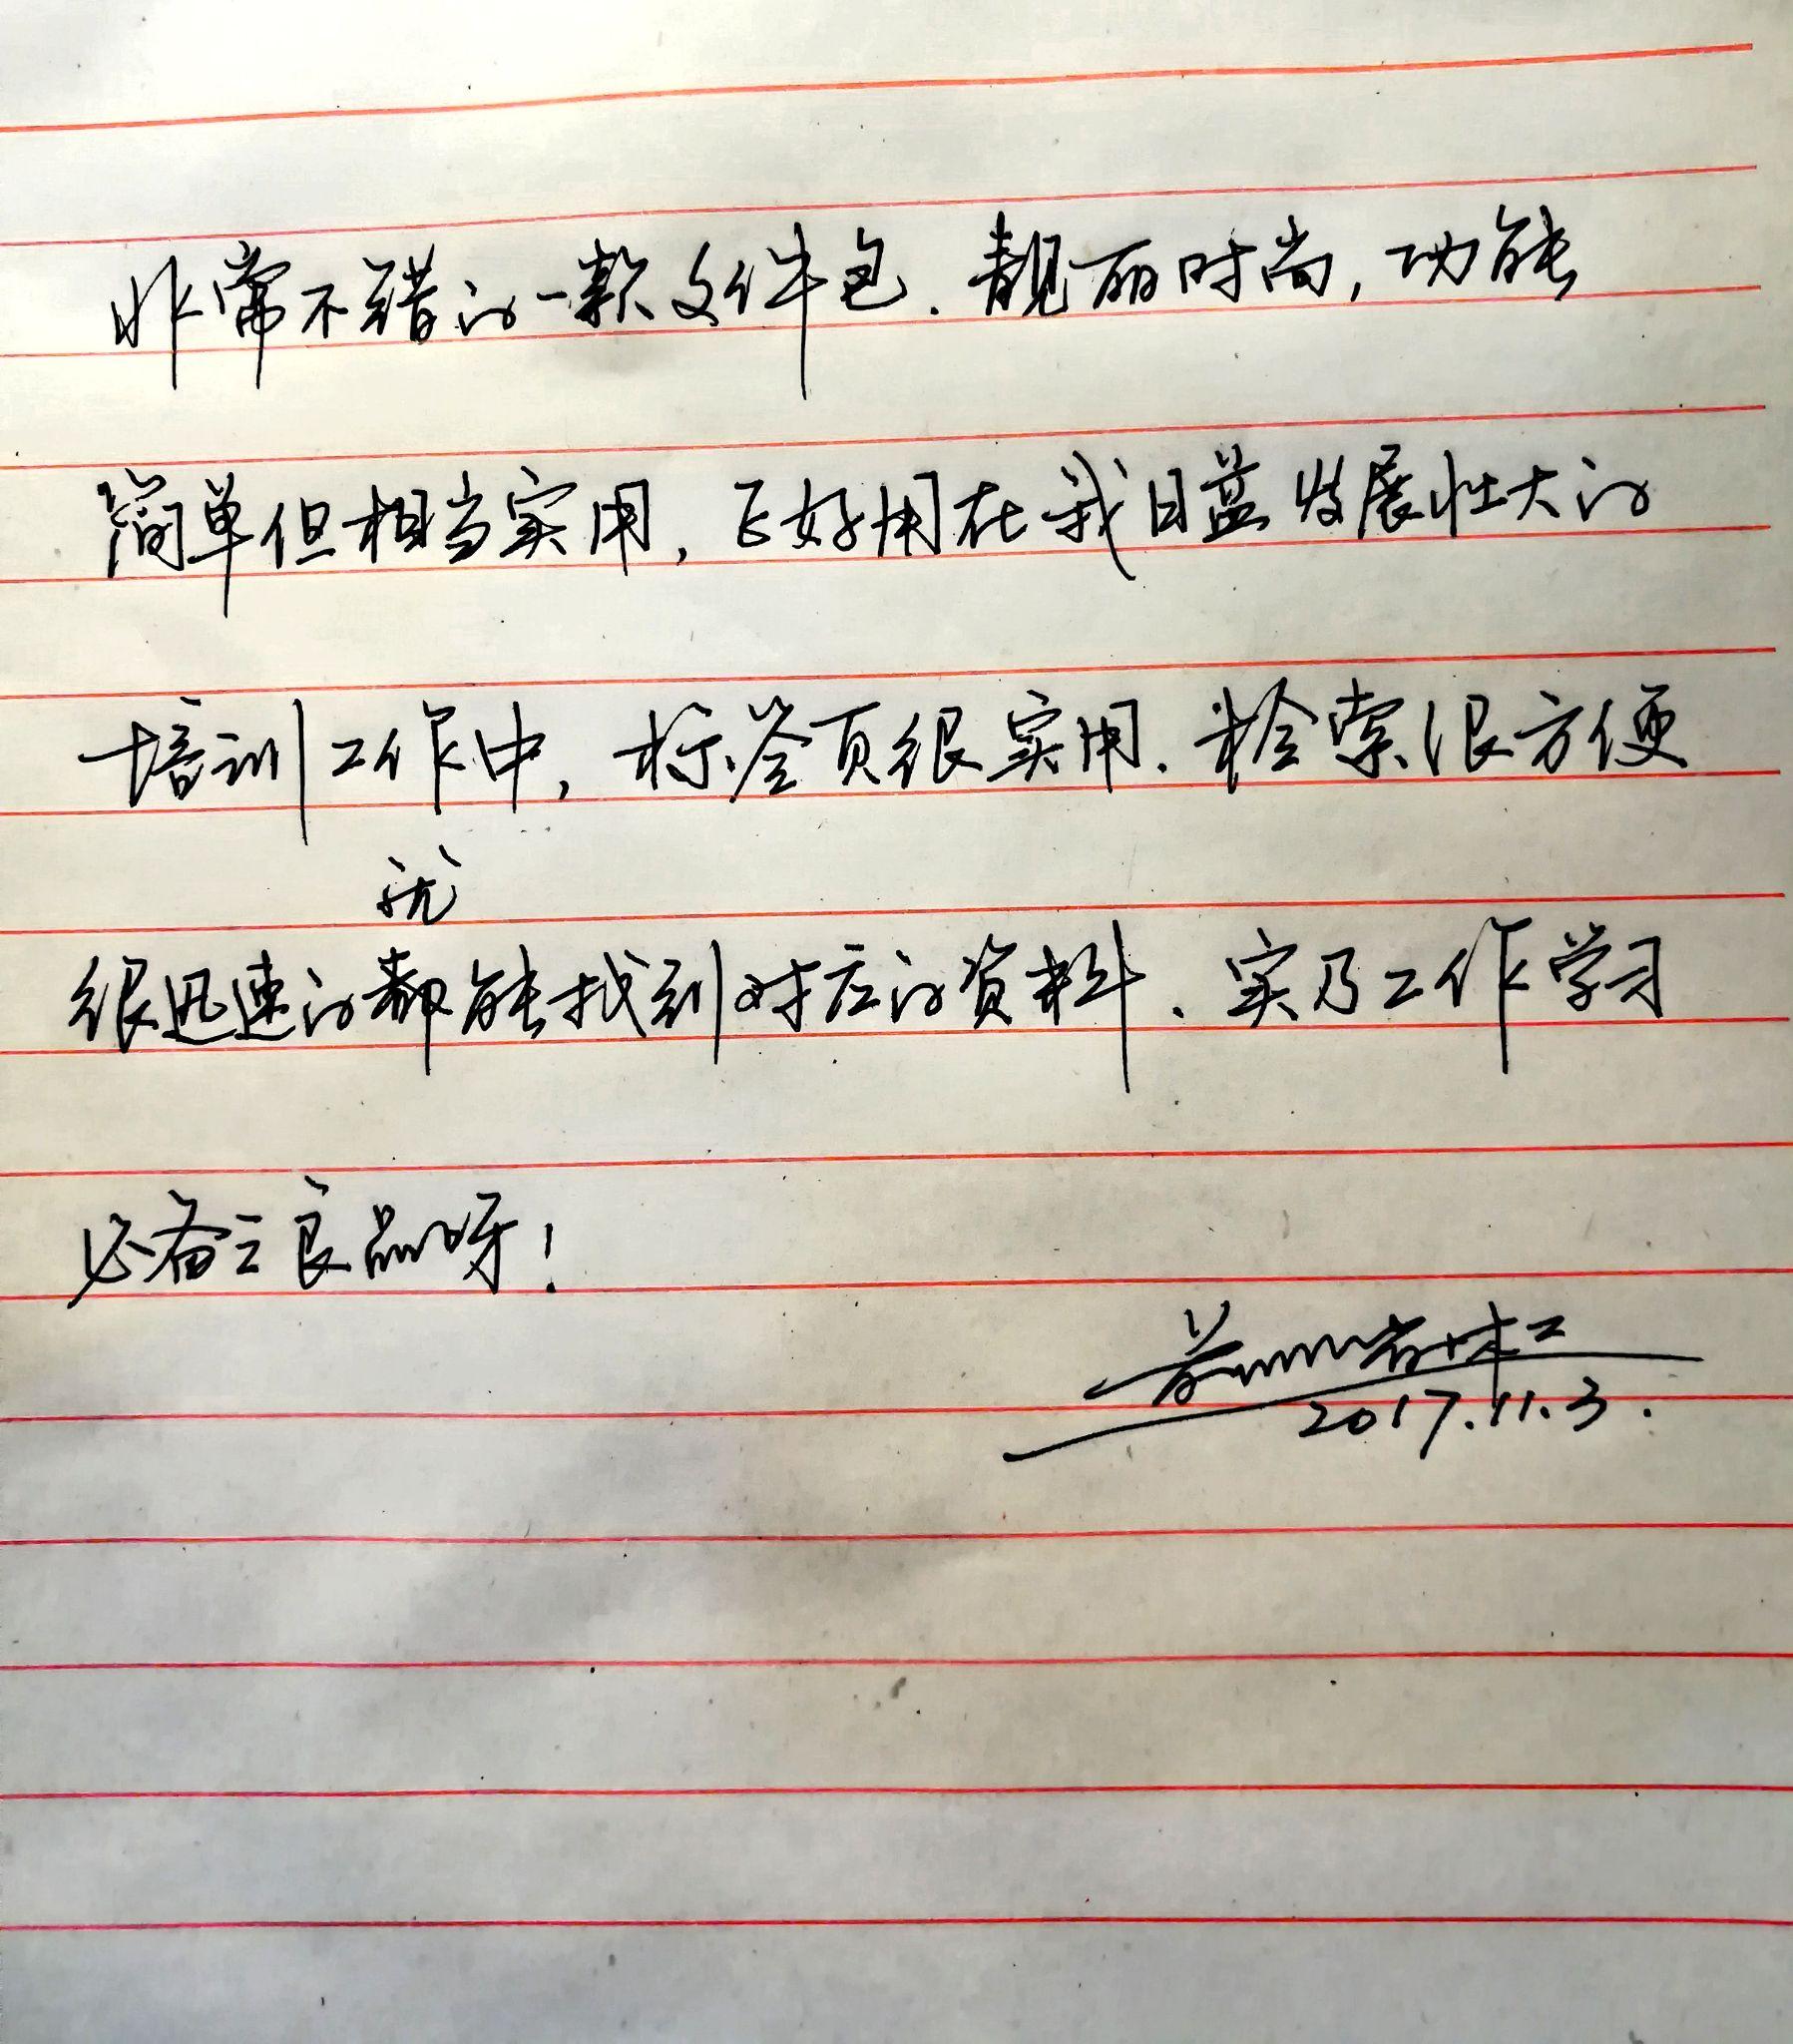 非常不错的一款文件包.靓丽时尚,功能
简单但相当实用,正好用在我日益发展壮大的
培训工作中,标签页很实用.检索很方便
就
很迅速的都能找到对应的资料.实乃工作学习
必备之良品呀!
2017.11.3.